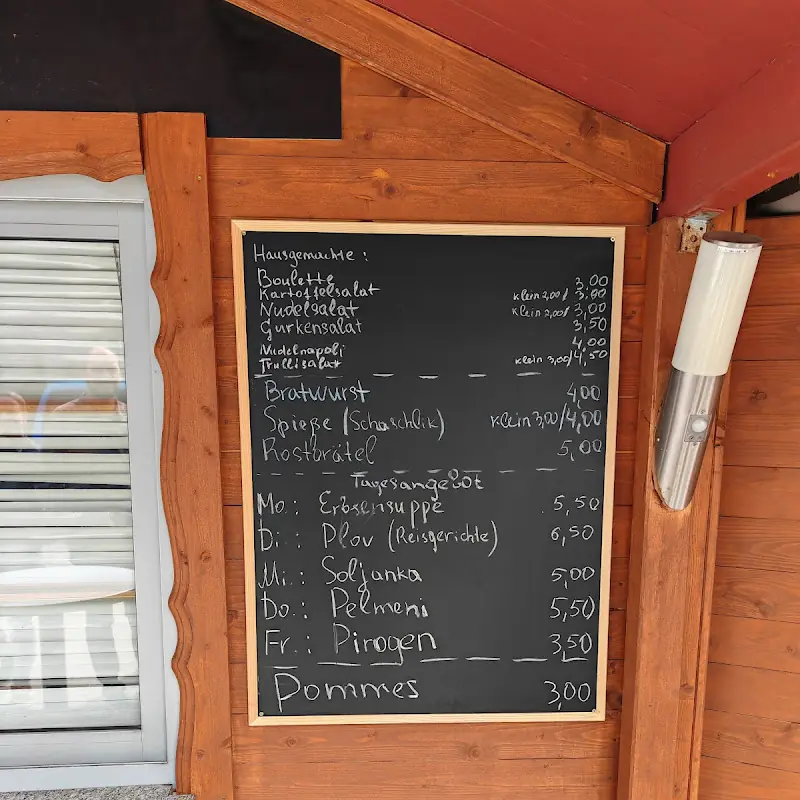 Hausgemachte :
Boulette 3,00
Kartoffelsalat klein 2,00/ 3,00
Nudelsalat klein 2,00/ 3,00
Gurkensalat 3,50
Nudelnapoli 4,00
Trullisalat klein 3,00/4,50
Bratwurst 4,00
Spieße (Schaschlik) klein 3,00/4,00
Rostbrätel 5,00
Tagesangebot
Mo.: Erbsensuppe 5,50
Di.: Plov (Reisgerichte) 6,50
Mi.: Soljanka 5,00
Do.: Pelmeni 5,50
Fr.: Pirogen 3,50
Pommes 3,00